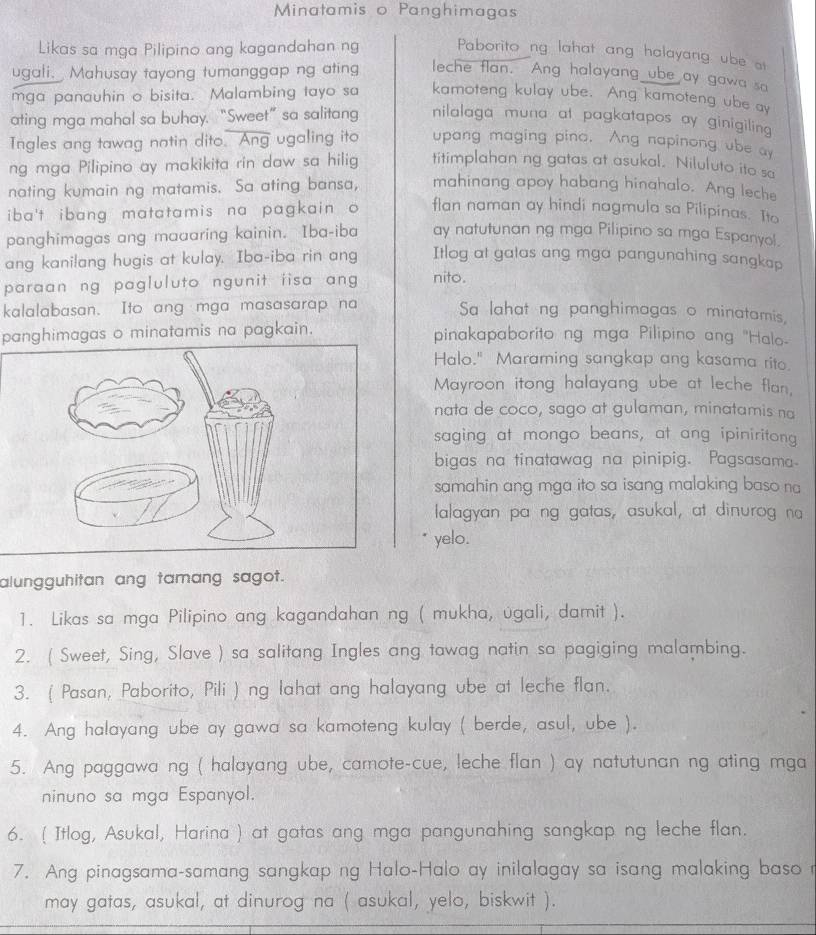 Minatamis o Panghimagas
Likas sa mga Pilipino ang kagandahan ng
ugali. Mahusay tayong tumanggap ng ating
mga panauhin o bisita. Malambing tayo sa
ating mga mahal sa buhay. "Sweet" sa salitang
Ingles ang tawag natin dito. Ang ugaling ito
ng mga Pilipino ay makikita rin daw sa hilig
nating kumain ng matamis. Sa ating bansa,
iba't ibang matatamis na pagkain o
panghimagas ang maaaring kainin. Iba-iba
ang kanilang hugis at kulay. Iba-iba rin ang
paraan ng pagluluto ngunit iisa ang
kalalabasan. Ito ang mga masasarap na
panghimagas o minatamis na pagkain.
Paborito ng lahat ang halayang ube at
leche flan. Ang halayang ube ay gawa sa
kamoteng kulay ube. Ang kamoteng ube ay
nilalaga muna at pagkatapos ay ginigiling
upang maging pino. Ang napinong ube ay
titimplahan ng gatas at asukal. Niluluto ito sa
mahinang apoy habang hinahalo. Ang leche
flan naman ay hindi nagmula sa Pilipinas. Ito
ay natutunan ng mga Pilipino sa mga Espanyol.
Itlog at gatas ang mga pangunahing sangkap
nito.
Sa lahat ng panghimagas o minatamis,
pinakapaborito ng mga Pilipino ang "Halo-
Halo." Maraming sangkap ang kasama rito.
Mayroon itong halayang ube at leche flan,
nata de coco, sago at gulaman, minatamis na
saging at mongo beans, at ang ipiniritong
bigas na tinatawag na pinipig. Pagsasama-
samahin ang mga ito sa isang malaking baso na
lalagyan pa ng gatas, asukal, at dinurog na
yelo.
alungguhitan ang tamang sagot.
1. Likas sa mga Pilipino ang kagandahan ng ( mukha, ugali, damit ).
2. ( Sweet, Sing, Slave ) sa salitang Ingles ang tawag natin sa pagiging malambing.
3. ( Pasan, Paborito, Pili ) ng lahat ang halayang ube at leche flan.
4. Ang halayang ube ay gawa sa kamoteng kulay ( berde, asul, ube ).
5. Ang paggawa ng ( halayang ube, camote-cue, leche flan ) ay natutunan ng ating mga
ninuno sa mga Espanyol.
6. ( Itlog, Asukal, Harina ) at gatas ang mga pangunahing sangkap ng leche flan.
7. Ang pinagsama-samang sangkap ng Halo-Halo ay inilalagay sa isang malaking baso
may gatas, asukal, at dinurog na ( asukal, yelo, biskwit ).